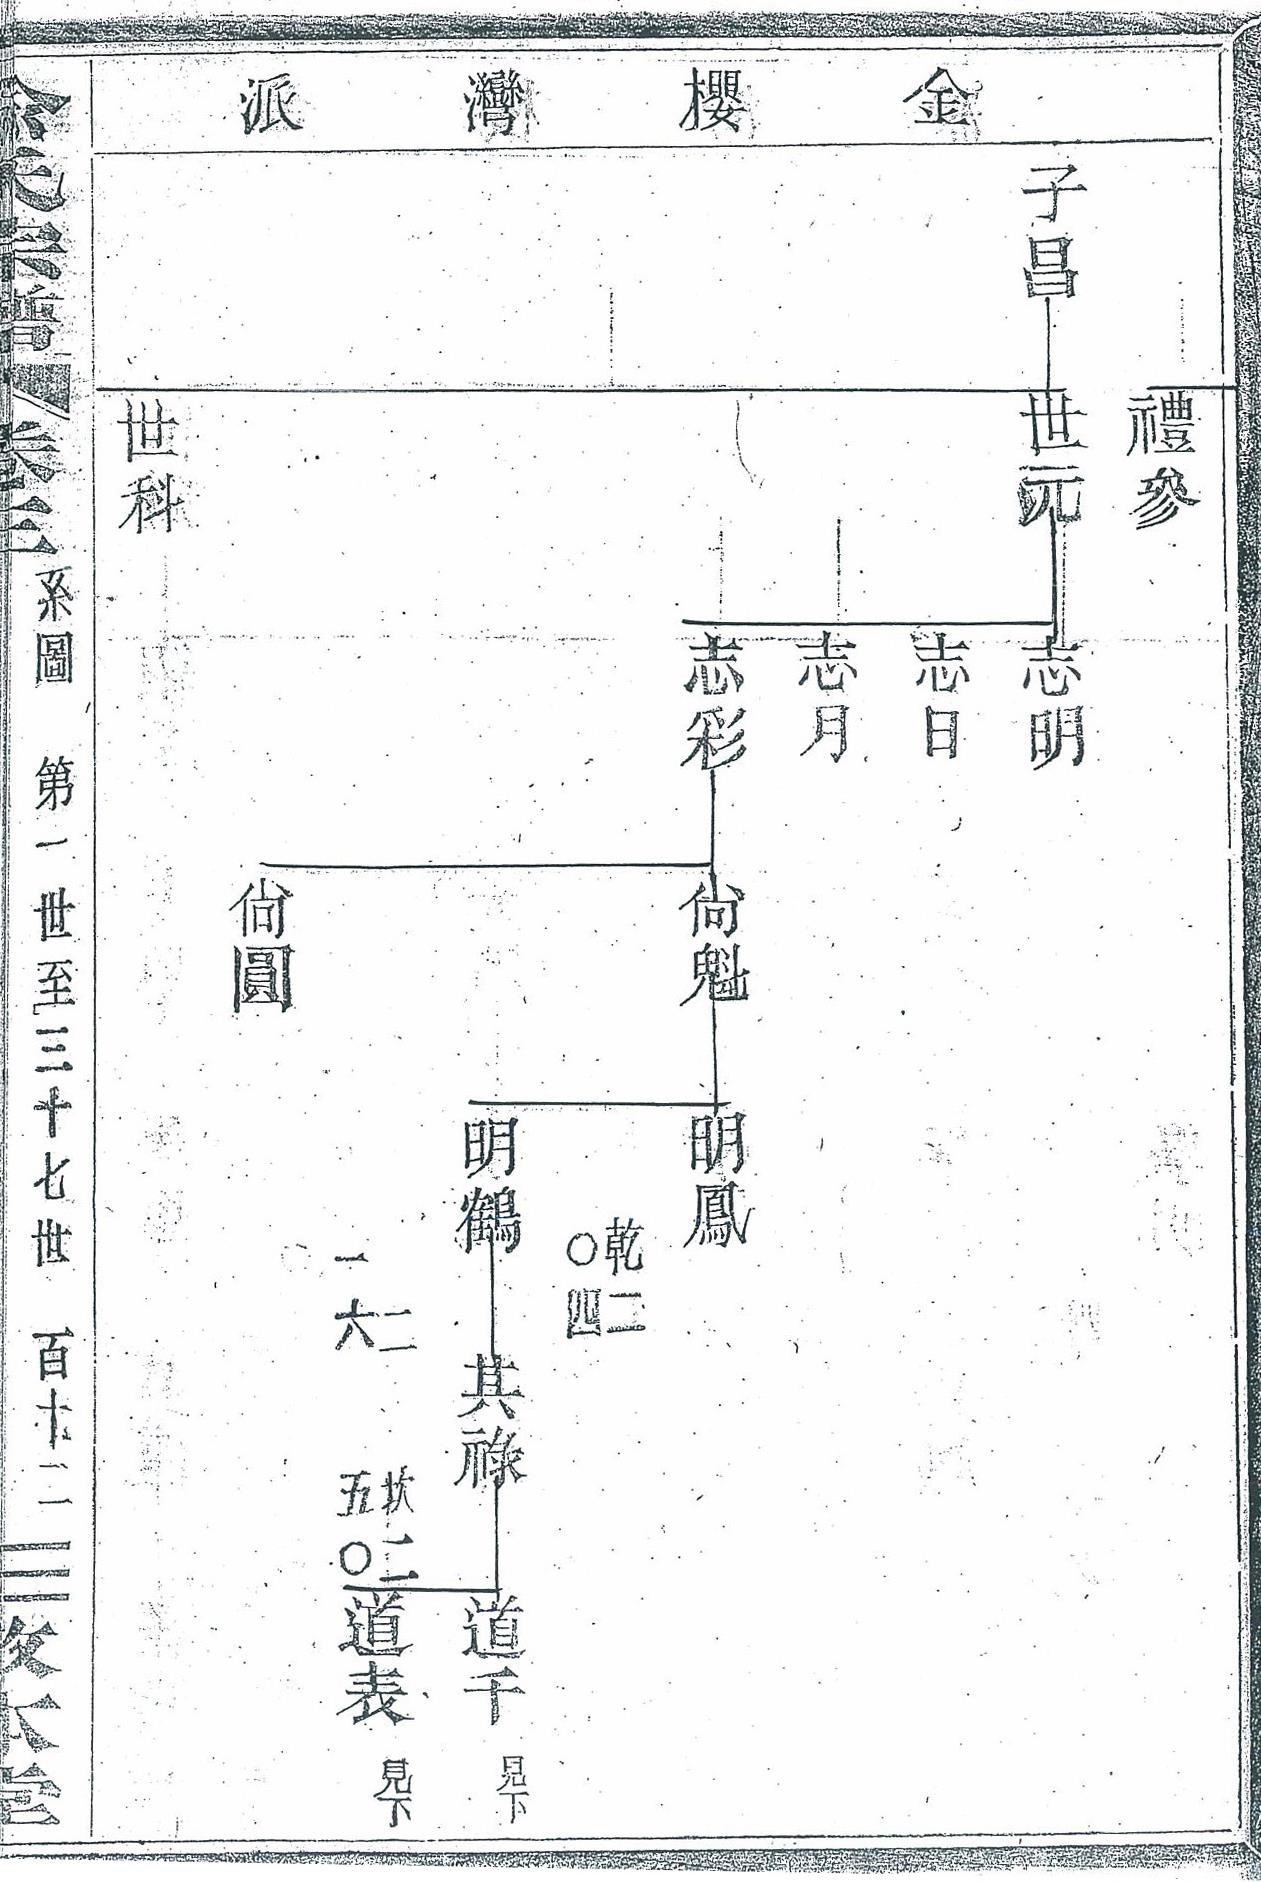 金櫻灣派
子昌
禮參
世元
世科
志明
志日
志月
志彩
尙魁
尙圓
明鳳
明鶴
乾二
〇四
其祿
二
一六
道千
見下
坎二
五〇
道表
見下
余氏宗譜 卷三 系圖 第一世至三十七世 百十二